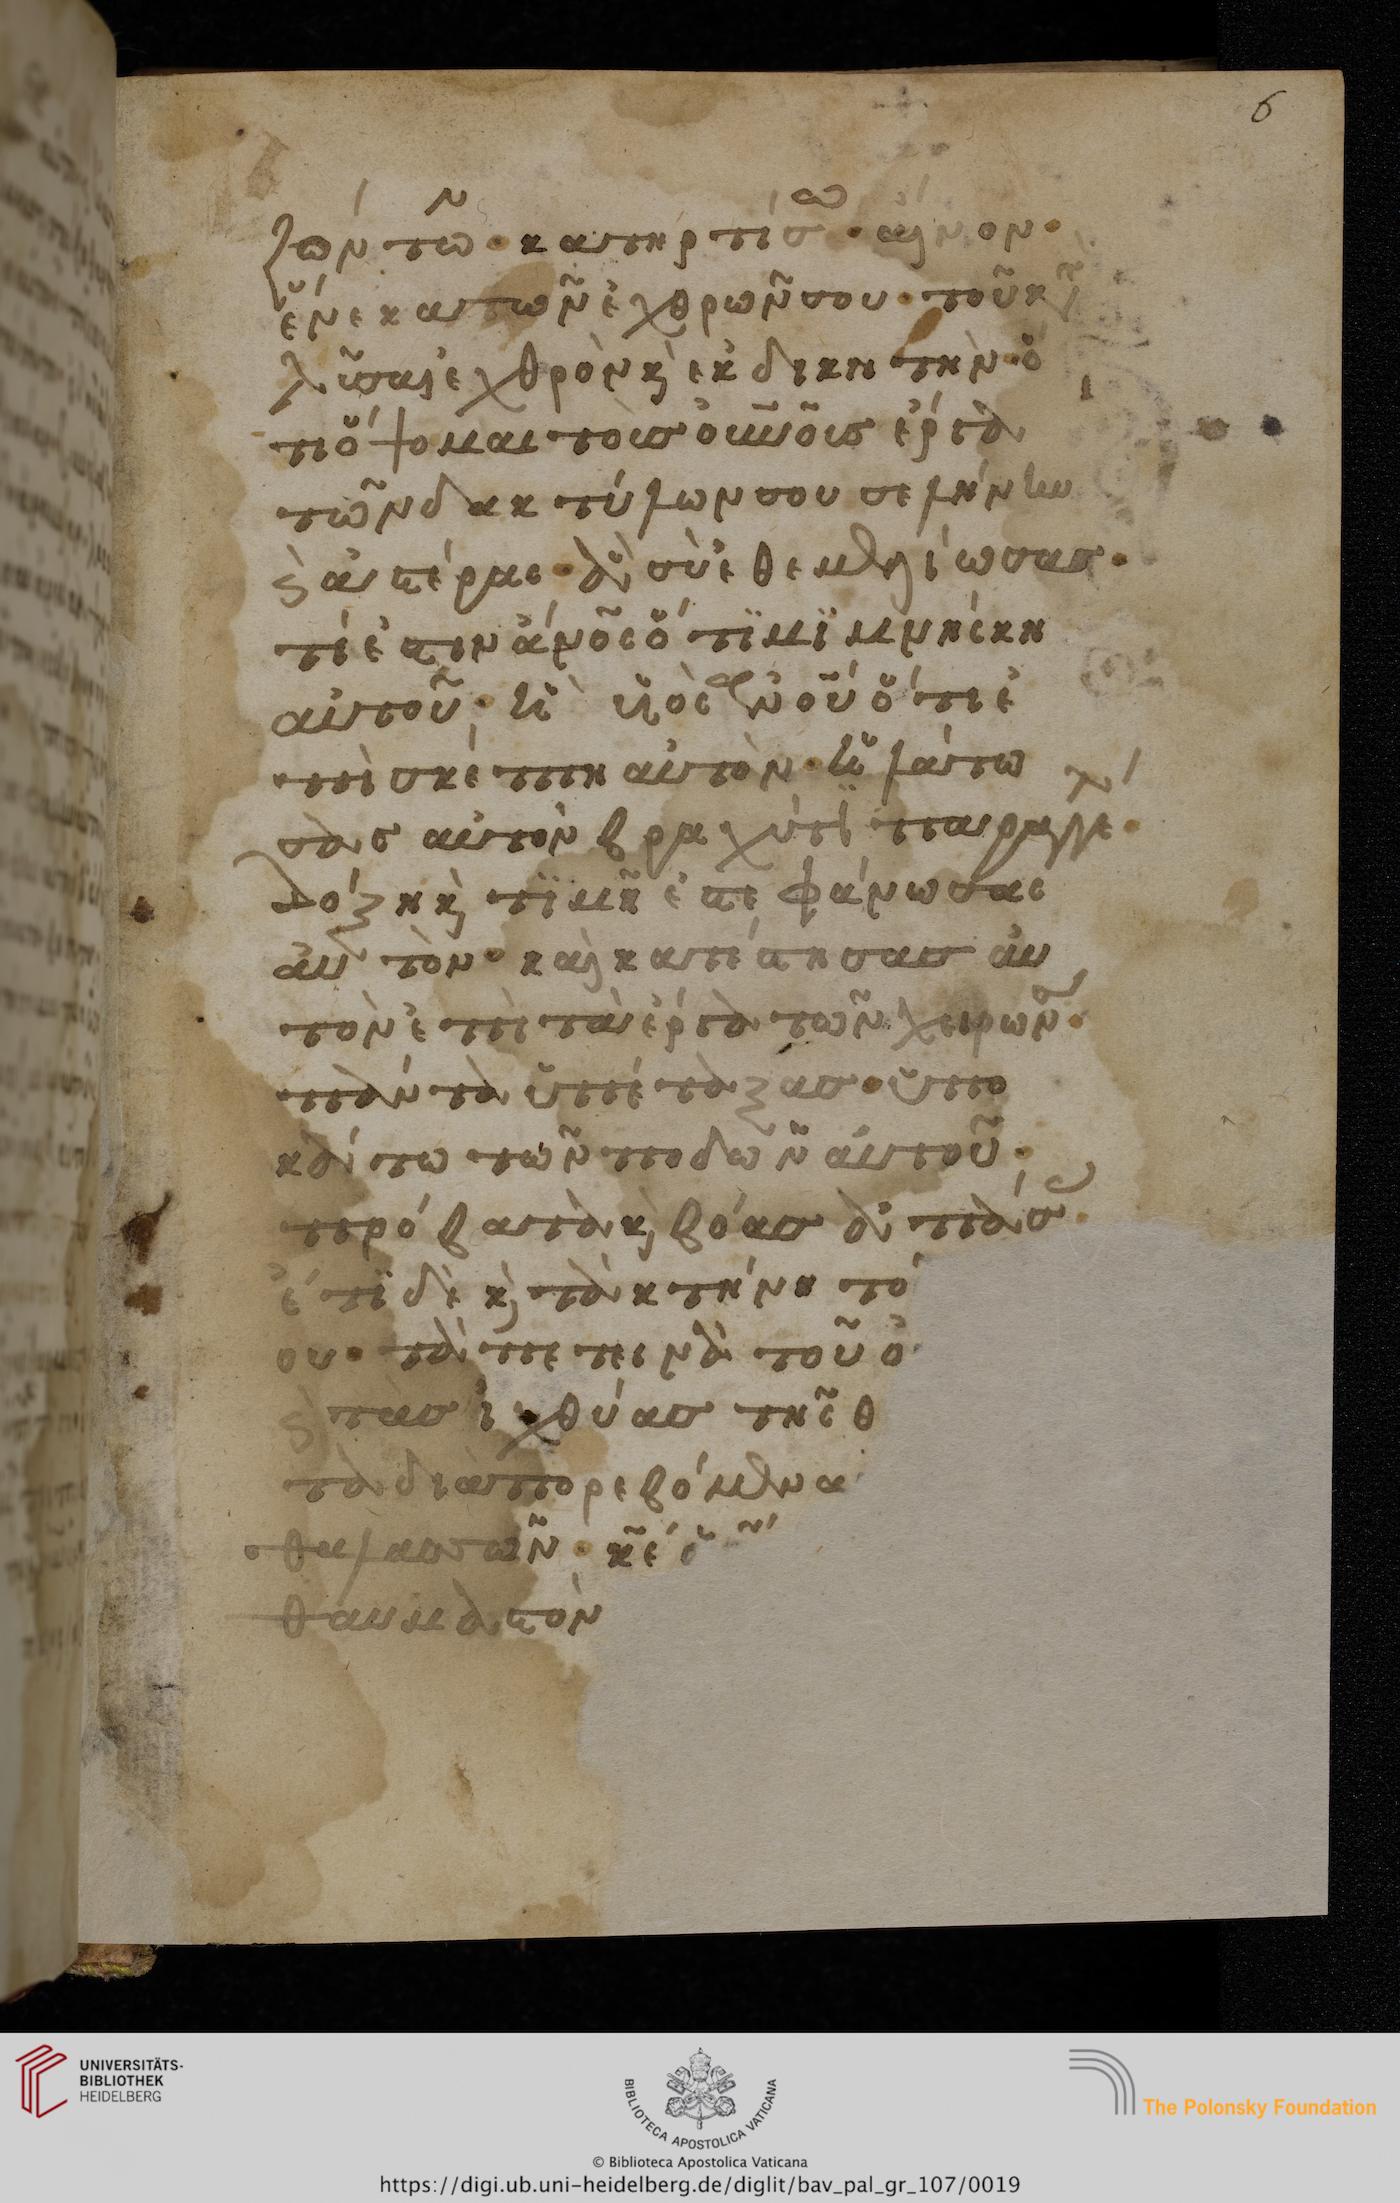 6
ζόντω· κατηρτίσω αἶνον·
ἕνεκα τῶν ἐχθρῶν σου· τοῦ κα
λῦσαι ἐχθρὸν κ ἐκδικητὴν· ὅ
τι ὄψομαι τοὺς οὐνοὺς ἔργα
τῶν δακτύλων σου σελήνην
κ ἀστέρας· ἃ σὺ ἐθεμελίωσας·
τί ἐστιν ἄνος ὅτι μιμνήσκη
αὐτοῦ· ἢ υἱὸς ἀνου ὅτι ἐ
πισκέπτη αὐτὸν· ἠλάττω
σας αὐτὸν βραχύ τι παραγγέλ·
δόξη κ τιμῆ ἐστεφάνωσας
αὐτὸν· καὶ κατέστησας αὐ
τὸν ἐπὶ τὰ ἔργα τῶν χειρῶν·
πάντα ὑπέταξας· ὑπο
κάτω τῶν ποδῶν αὐτοῦ·
πρόβατα κ βόας ἁπάσας·
ἔτι δὲ κ τὰ κτήνη το
ου· τὰ πετεινὰ τοῦ ο
κ τὰς ἰχθύας τῆς θ
τὰ διαπορεβόμενα
θαλασσῶν· κε ὁ
θαυμαστὸν
UNIVERSITÄTS-
BIBLIOTHEK
HEIDELBERG
BIBLIOTECA APOSTOLICA VATICANA
The Polonsky Foundation
© Biblioteca Apostolica Vaticana
https://digi.ub.uni-heidelberg.de/diglit/bav_pal_gr_107/0019